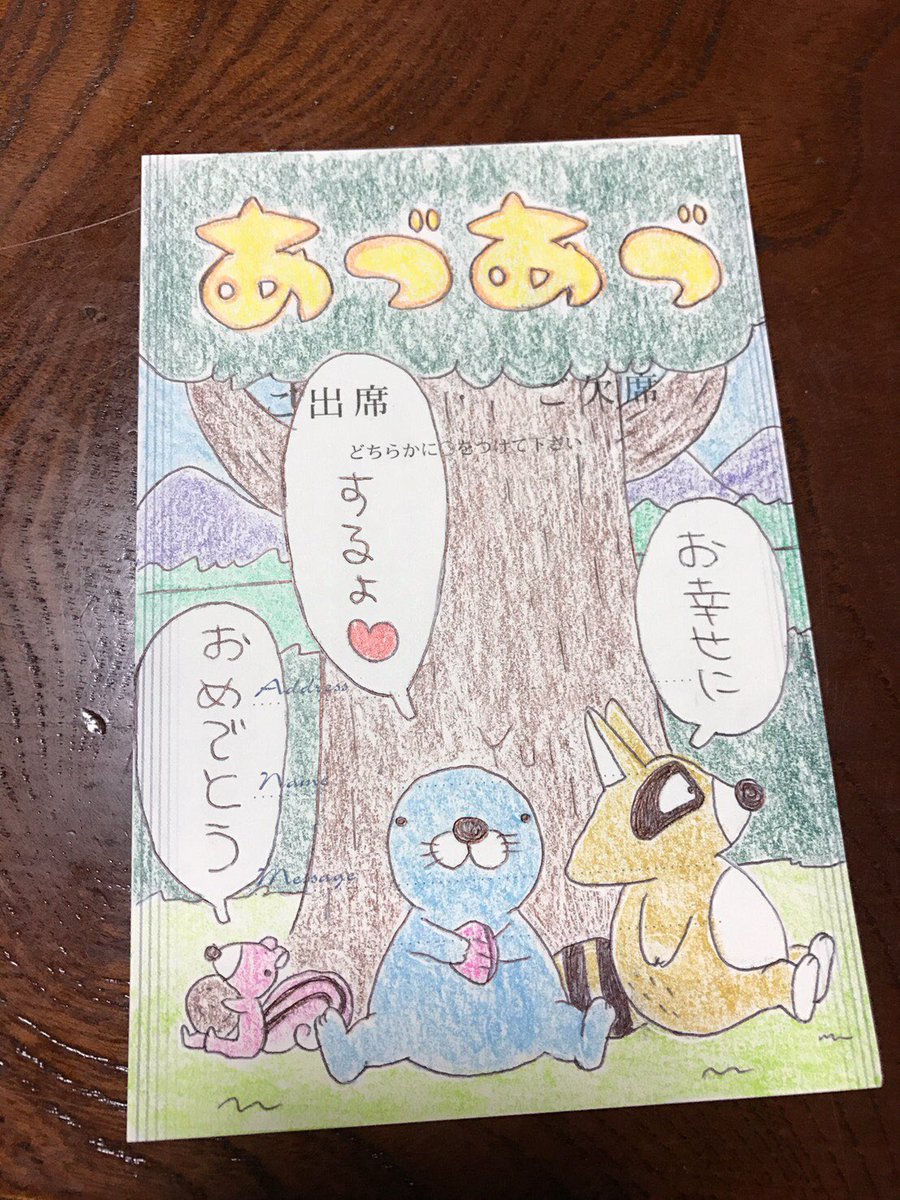 あづあづ
ご出席 ・ ご欠席
どちらかに○をつけて下さい
するよ
お幸せに
おめでとう
Address
Name
Message